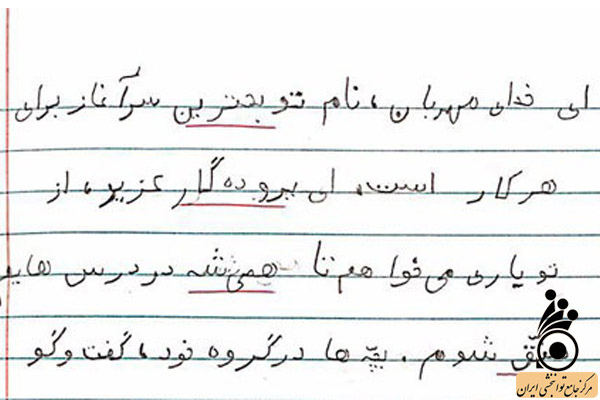 ای خدای مهربان ، نام تو بجترین سرآغاز برای
هر کار است. ای بروده گار عزیز ، از
تو یاری می خواهم تا همی شه در درس هایم
شوم . بچّه ها در گروه خود ، گفت و گو
مرکز جامع توانبخشی ایران